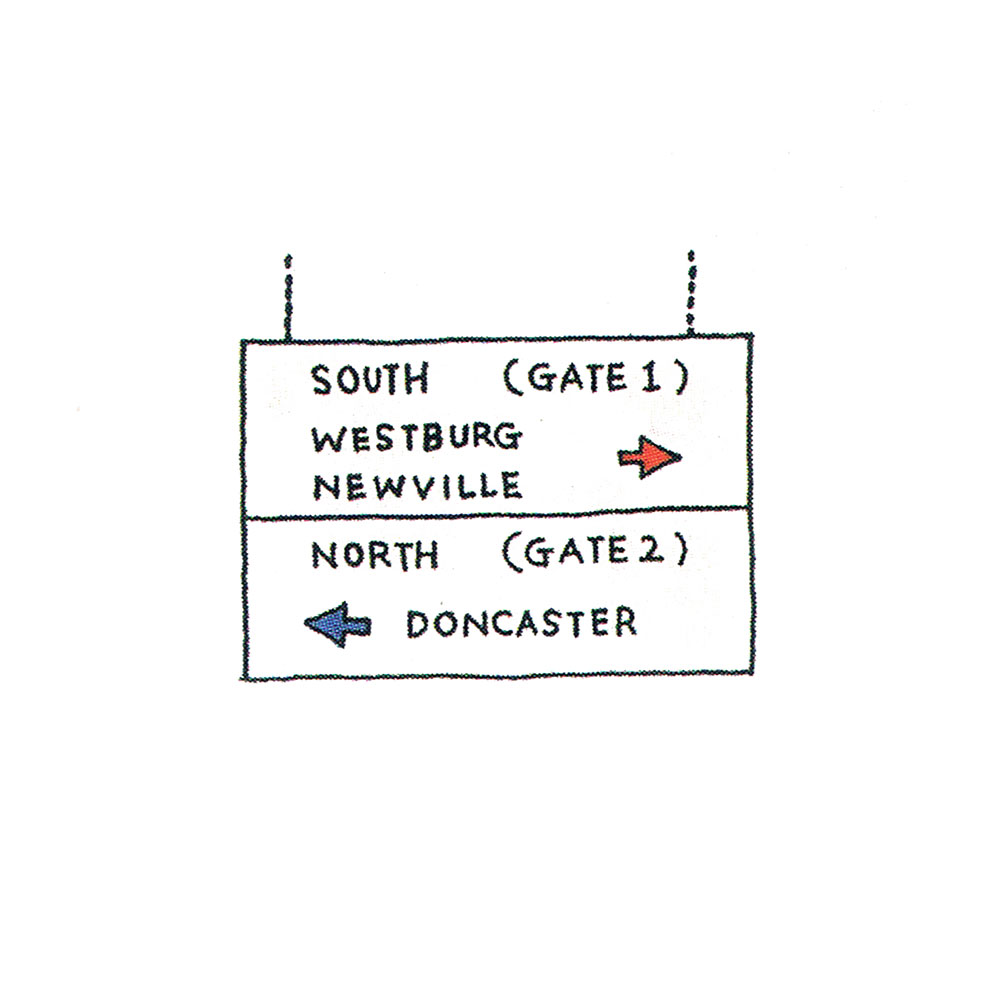 SOUTH (GATE 1)
WESTBURG
NEWVILLE
NORTH (GATE 2)
DONCASTER